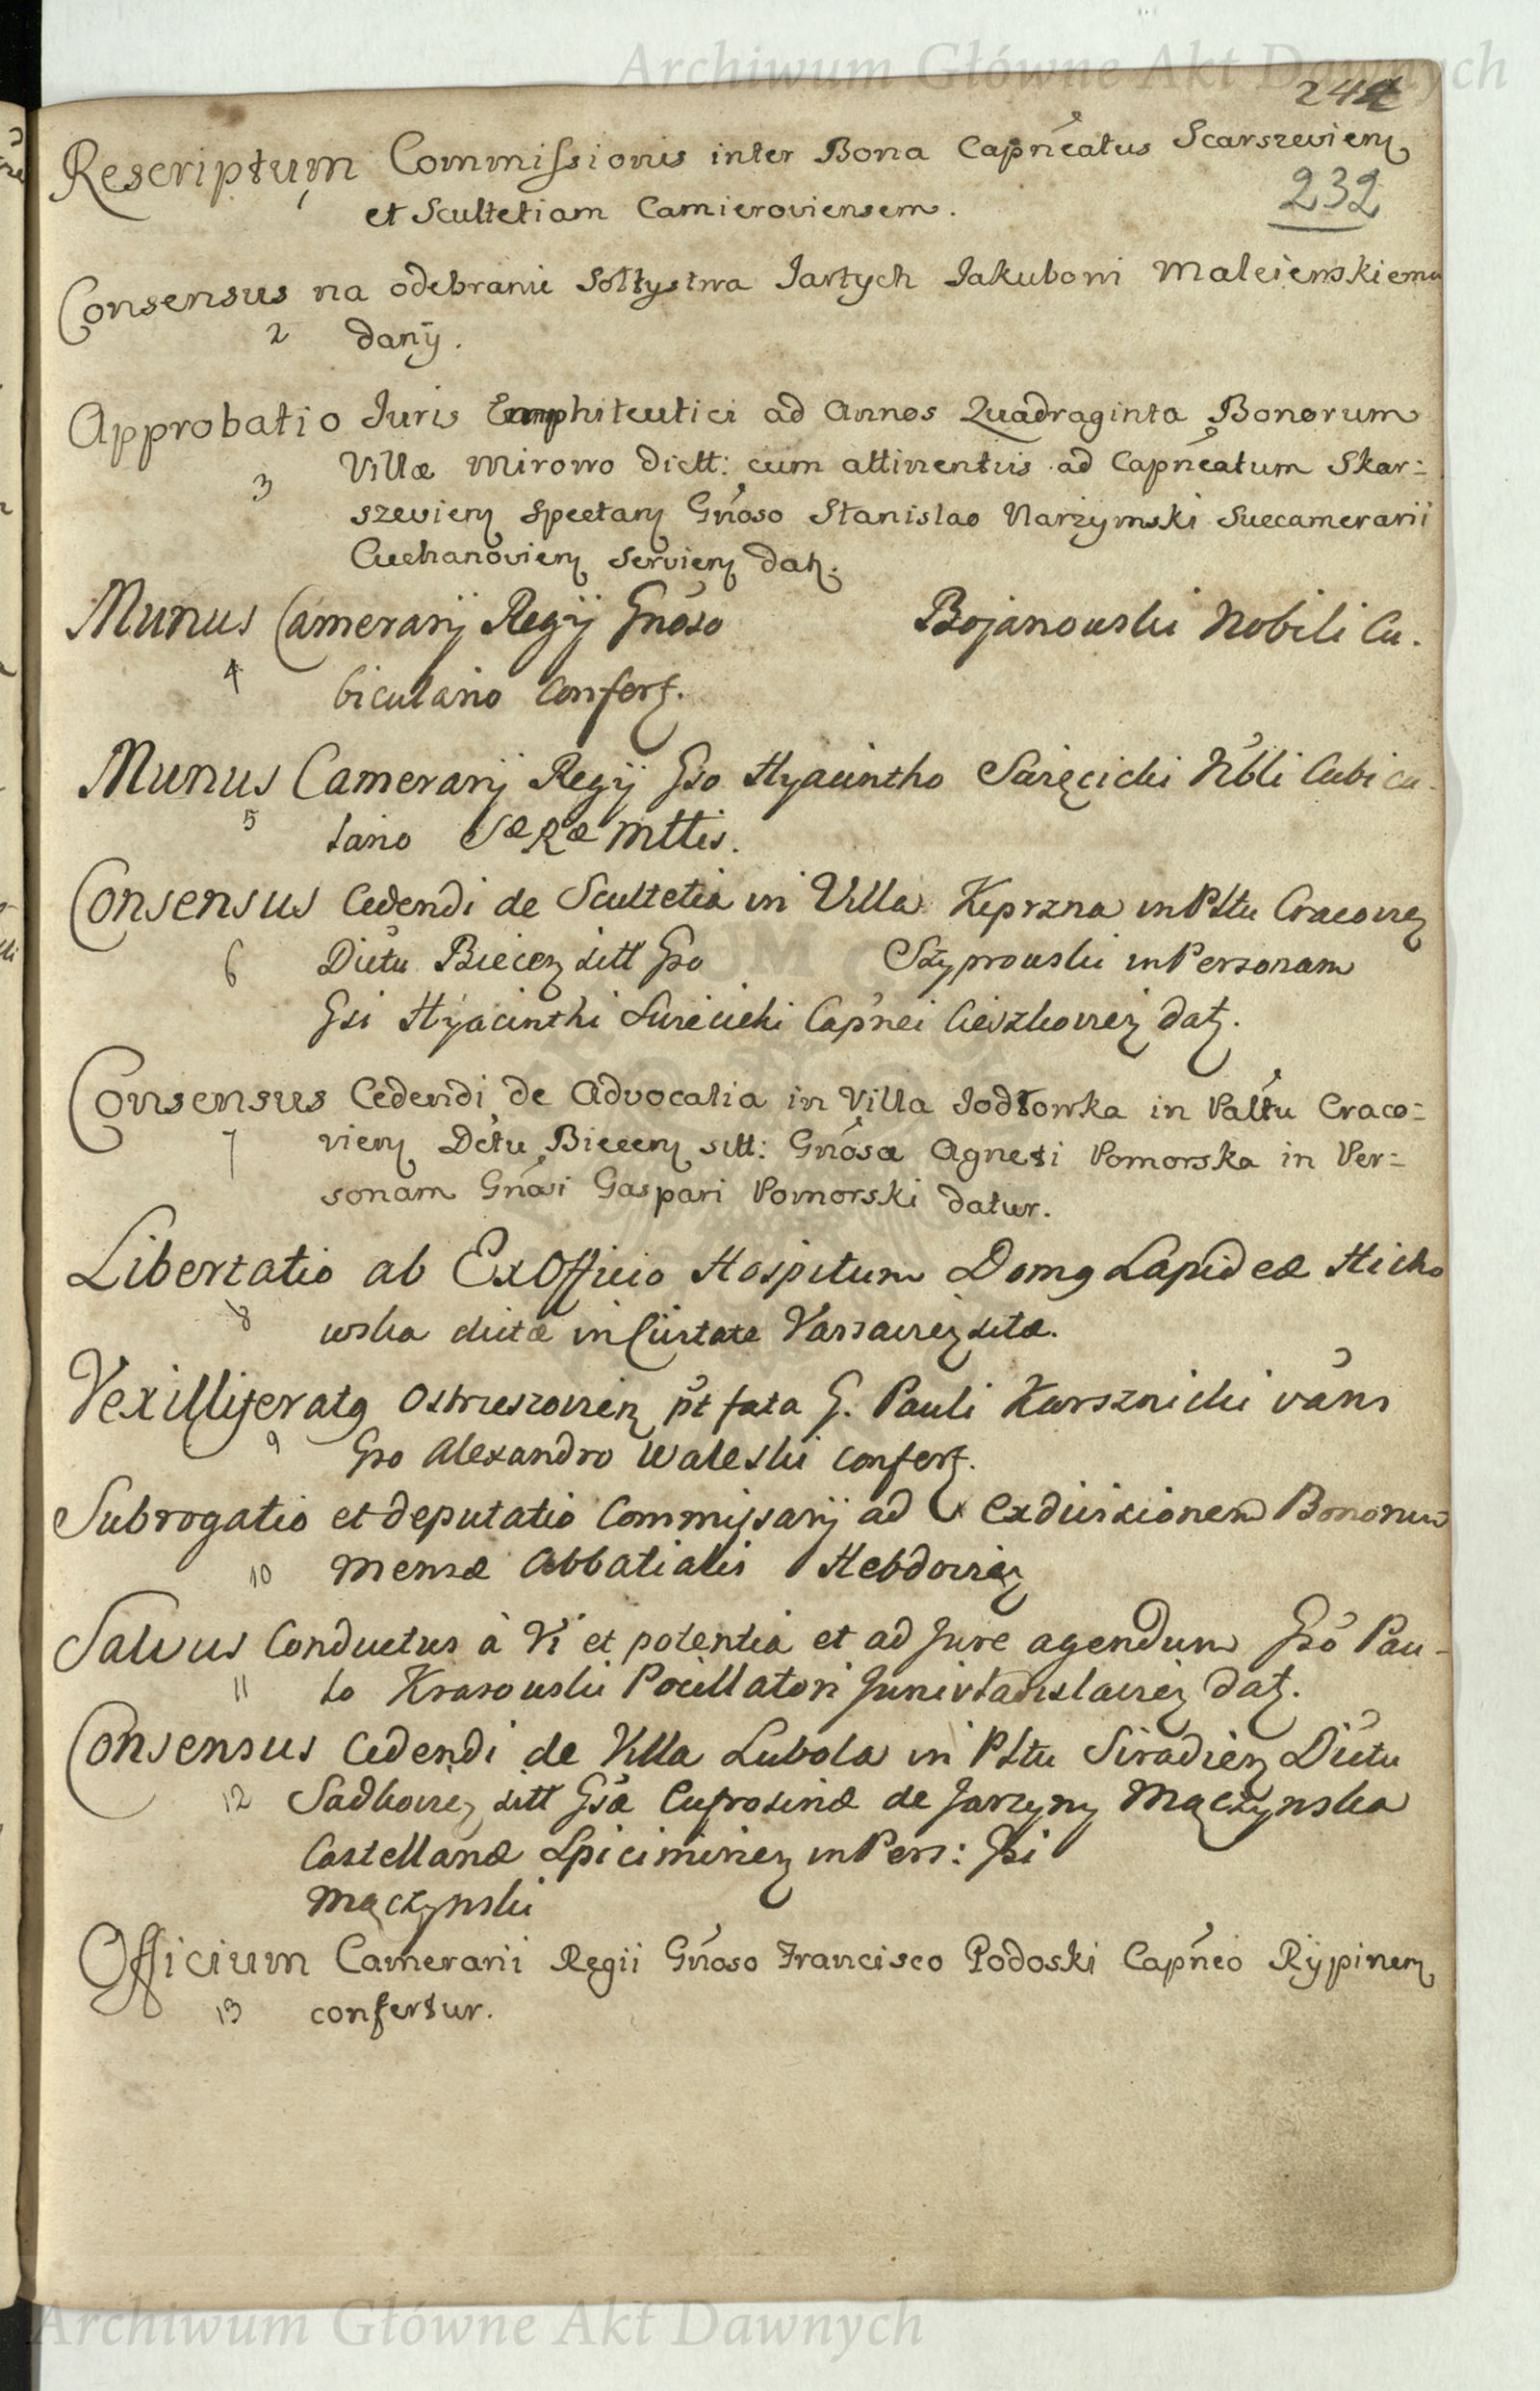 Archiwum Główne Akt Dawnych
244
Rescriptum Commissionis inter Bona Capnéatus Scarszeviens
232
1 et Scultetiam Camieroviensem.
Consensus na odebranie Sołtystwa Jartych Jakubowi Maleienskiemu
2 dany.
Approbatio Juris Emphiteutici ad Annos Quadraginta Bonorum
Villæ Mirowo dictt: cum attinentiis ad Capnéatum Skar=
3
szeviens spectans Gnóso Stanislao Narzymski Succamerarii
Ciechanoviens serviens datz.
Munus Camerarij Regij Gnóso Bojanowski Nobili Cu.
4 biculario confertz.
Munus Camerarij Regij Gso Hyacintho Suręcicki Nbli Cubicu-
5 lario Sæ Ræ Mttis.
Consensus Cedendi de Scultetia in Villa Kiprzna in Pltu Cracovien
6 Dictu Biecen sitt Gso Szyprowski in Personam
Gsi Hyacinthi Surecicki Capnei Cieszkovien datz.
Consensus Cedendi de Advocatia in Villa Jodłowka in Paltu Craco=
7 viens Dctu Biecens sitt: Gnósæ Agneti Pomorska in Per=
sonam Gnósi Gaspari Pomorski datur.
Libertatio ab Ex Officio Hospitum Domg Lapideæ Hicko
8 wska dictæ in Ciuitate Varsavien sitæ.
Vexilliferatg Ostrzeszovien pt fata G. Pauli Karsznicki vans
9 Gso Alexandro Waleski confertz.
Subrogatio et deputatio Commissarij ad exdivisionem Bonorum
10 Mensæ Abbatialis Hebdovien
Salvus Conductus à Vi et potentia et ad Jure agendum Gso Pau-
11 lo Krasowski Pocillatori Junivladislavien datz.
Consensus Cedendi de Villa Lubola in Pltu Siradien Dictu
12 Sadkovien sitt Gsæ Eufrosinæ de Jarzyny Mączynska
Castellanæ Spicimirien in Pers: Gsi
Mączynski
Officium Camerarii Regii Gnóso Francisco Podoski Capnéo Rypinens
13 confertur.
Archiwum Główne Akt Dawnych